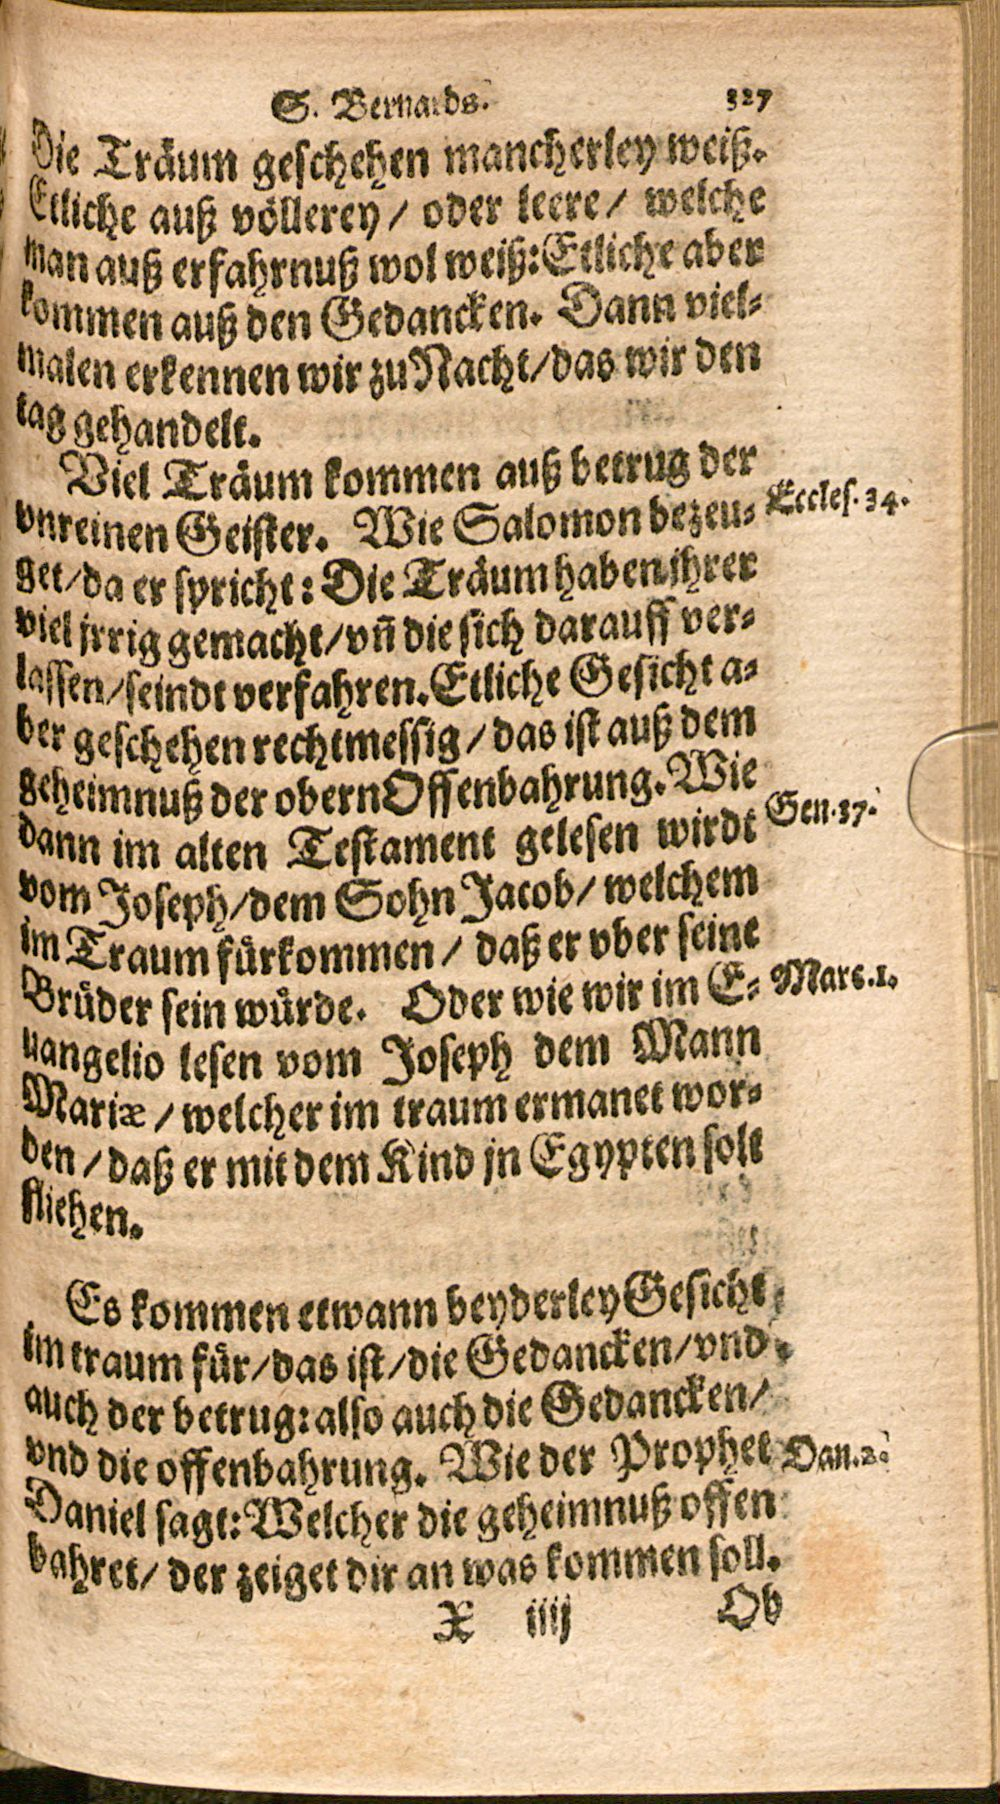 S. Bernards. 327
Die Träum geschehen mancherley weiß.
Etliche auß völlerey / oder leere / welche
man auß erfahrnuß wol weiß: Etliche aber
kommen auß den Gedancken. Dann viel-
malen erkennen wir zu Nacht / das wir den
tag gehandelt.
Viel Träum kommen auß betrug der
vnreinen Geister. Wie Salomon bezeu- Eccles. 34.
get / da er spricht: Die Träum haben jhrer
viel jrrig gemacht / vñ die sich darauff ver-
lassen / seindt verfahren. Etliche Gesicht a-
ber geschehen rechtmessig / das ist auß dem
geheimnuß der obern Offenbahrung. Wie
dann im alten Testament gelesen wirdt Gen. 37.
vom Joseph / dem Sohn Jacob / welchem
im Traum fürkommen / daß er vber seine
Brüder sein würde. Oder wie wir im E- Marc. 1.
uangelio lesen vom Joseph dem Mann
Mariæ / welcher im traum ermanet wor-
den / daß er mit dem Kind jn Egypten solt
fliehen.
Es kommen etwann beyderley Gesicht
im traum für / das ist / die Gedancken / vnd
auch der betrug: also auch die Gedancken /
vnd die offenbahrung. Wie der Prophet Dan. 2.
Daniel sagt: Welcher die geheimnuß offen
bahret / der zeiget dir an was kommen soll.
X iiij Ob